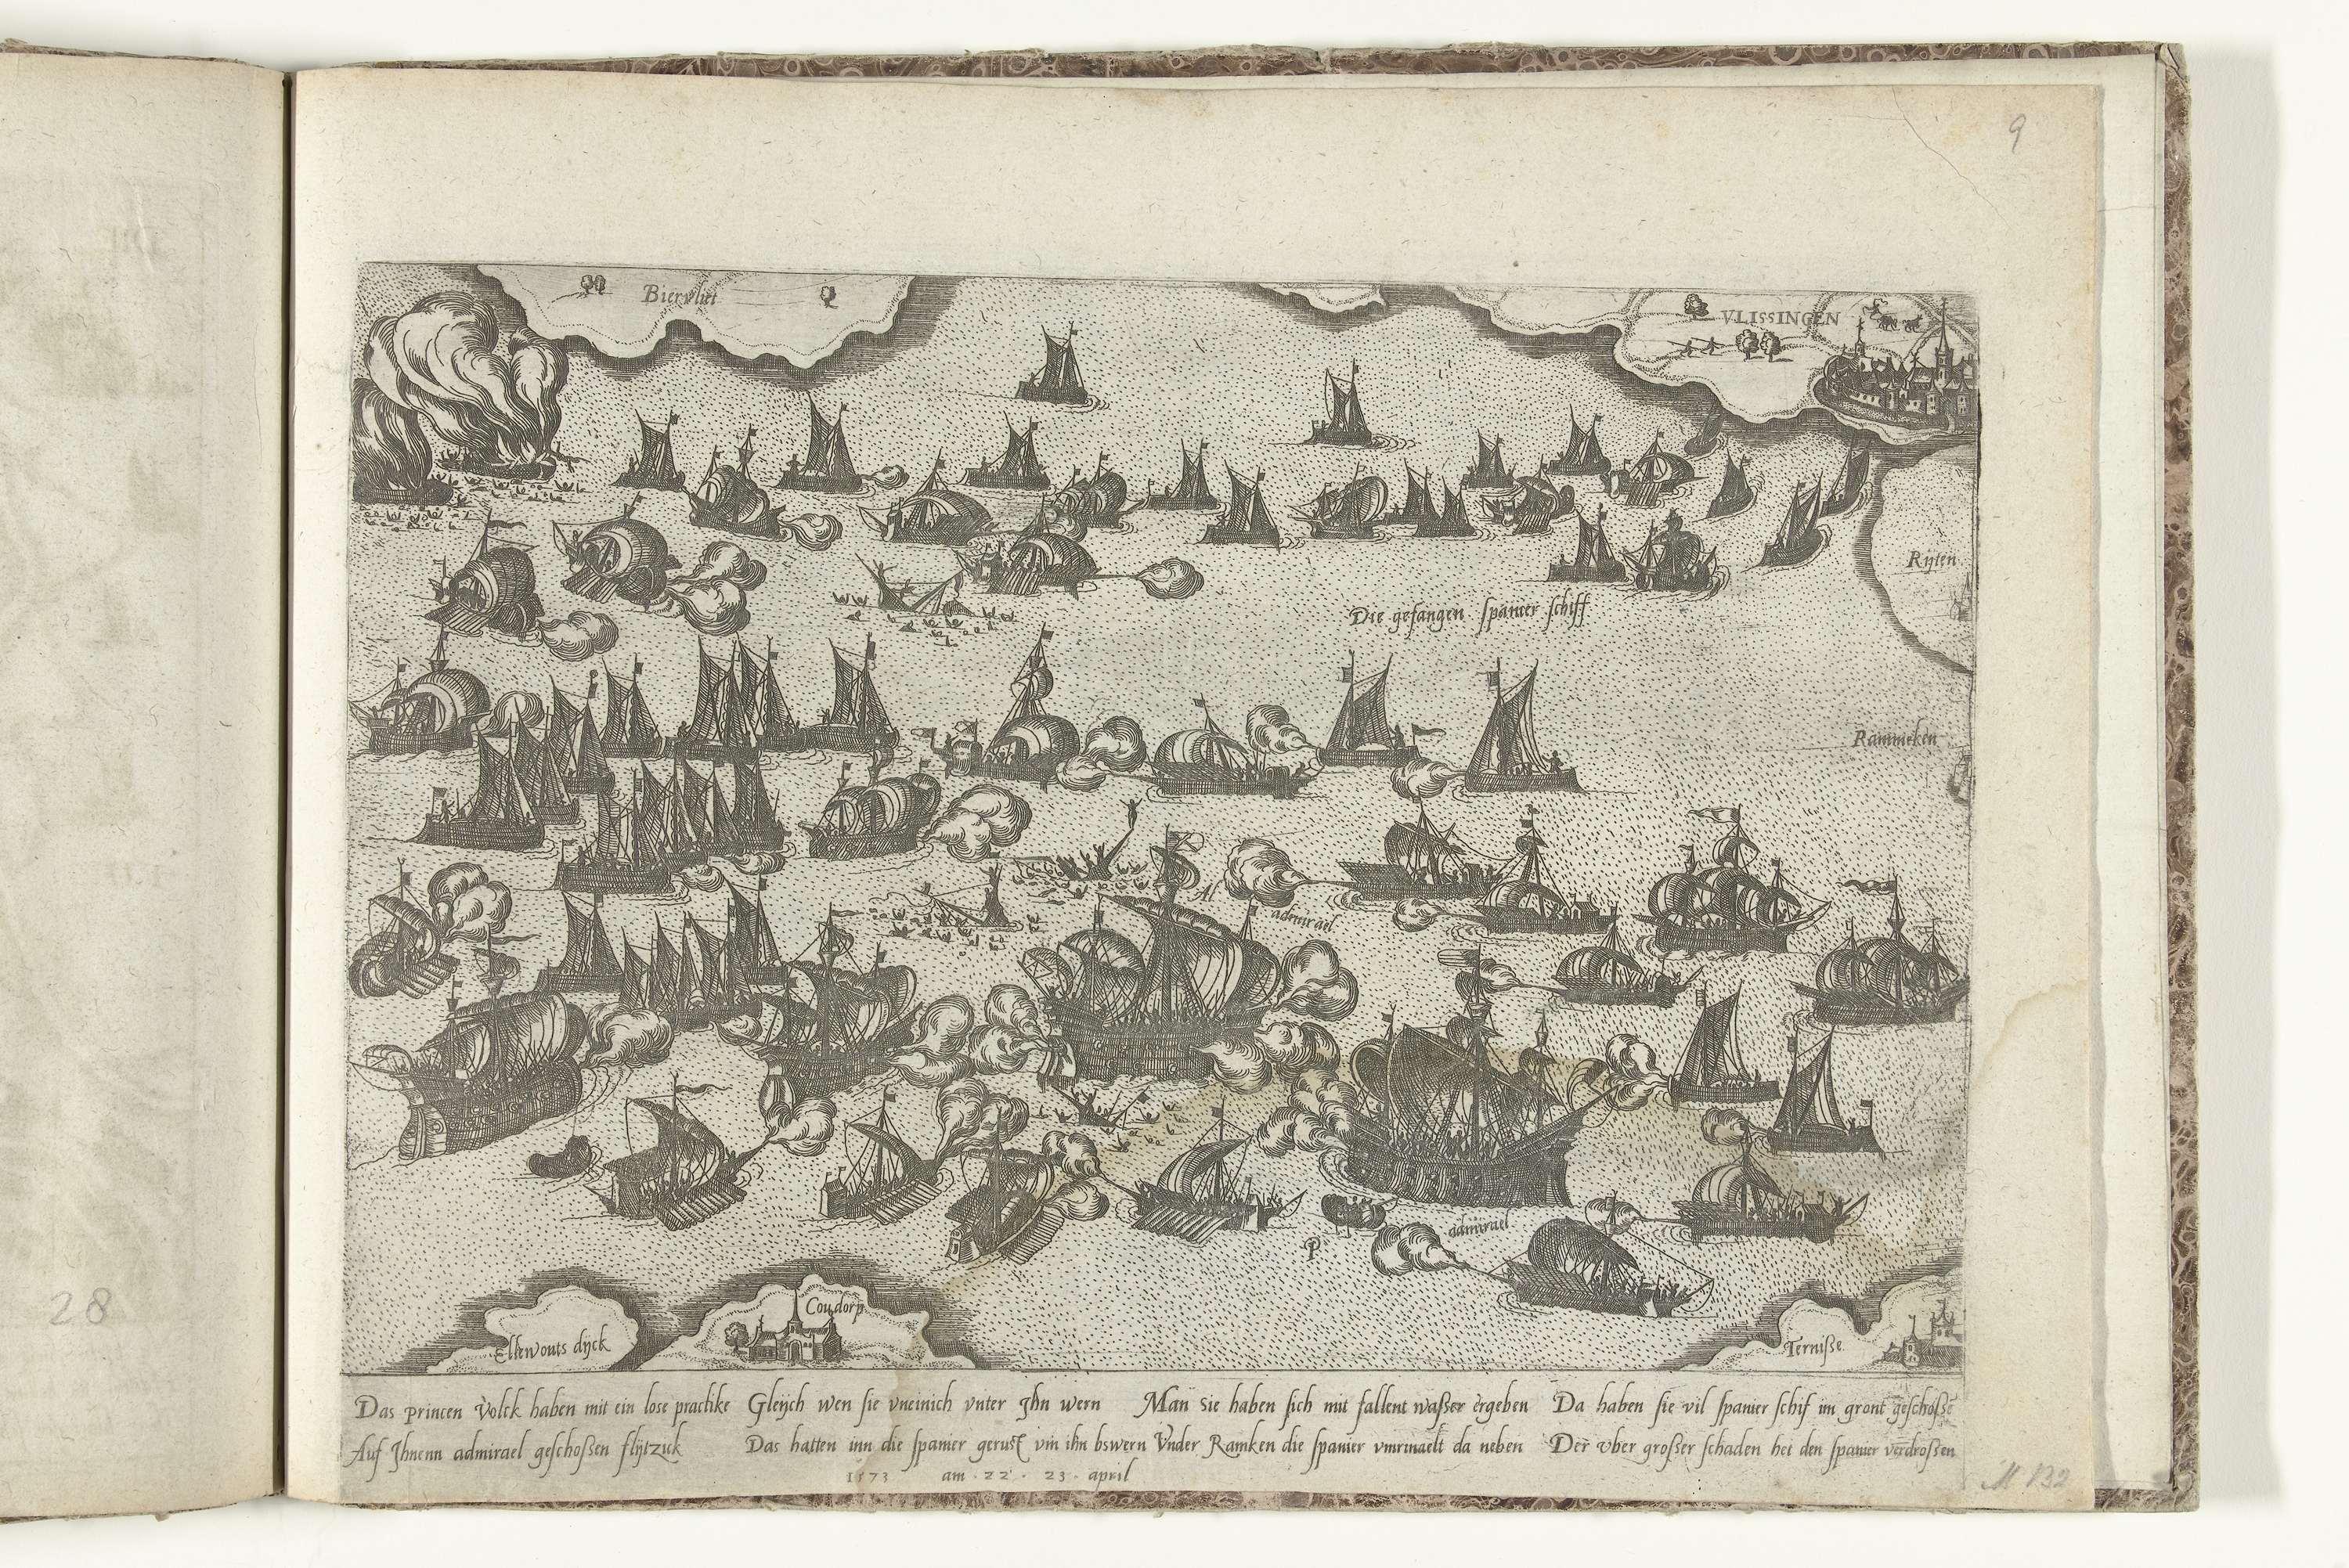 9
Biervliet
VLISSINGEN
Rijten
Die gefangen spanier schiff
Rammeken
Al
admirael
admirael
P
Coudorp
Ellewouts dijck
Ternisse
28
Das princen Volck haben mit ein lose practike Gleijch wen sie vneinich vnter Ihn wern Man Sie haben sich mit fallent wasser ergeben Da haben sie vil spanier schif im gront geschosse
Auf Ihnenn admirael geschossen flijtzick Das hatten inn die spanier gerust vm ihn bswern Vnder Ramken die spanier vmrinaelt da neben Der vber grosser schaden het den spanier verdrossen
1573 am · 22 · 23 · april
M 132